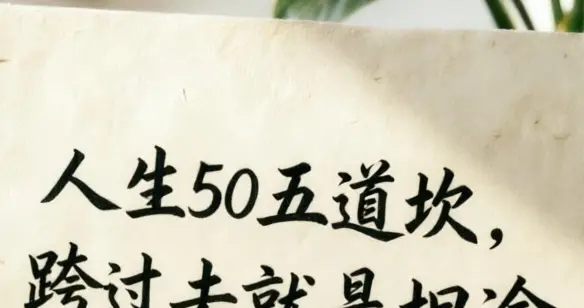 人生50五道坎，
跨过去就是坦途